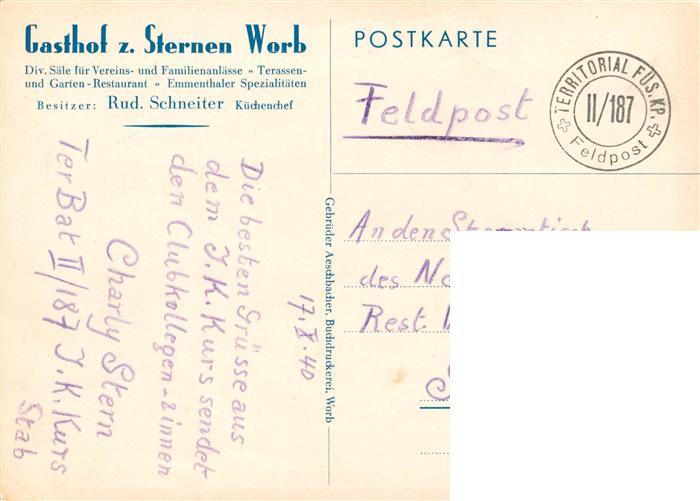 Gasthof z. Sternen Worb
Div. Säle für Vereins- und Familienanlässe » Terassen-
und Garten-Restaurant » Emmenthaler Spezialitäten
Besitzer: Rud. Schneiter Küchenchef
17. X. 40
Die besten Grüsse aus
dem J. K. Kurs sendet
den Clubkollegen & innen
Charly Stern
Ter Bat II/187 J. K. Kurs
Stab
Gebrüder Aeschbacher, Buchdruckerei, Worb
POSTKARTE
Feldpost
TERRITORIAL FÜS. KP.
II/187
Feldpost
An den Stammtisch
des
Rest.